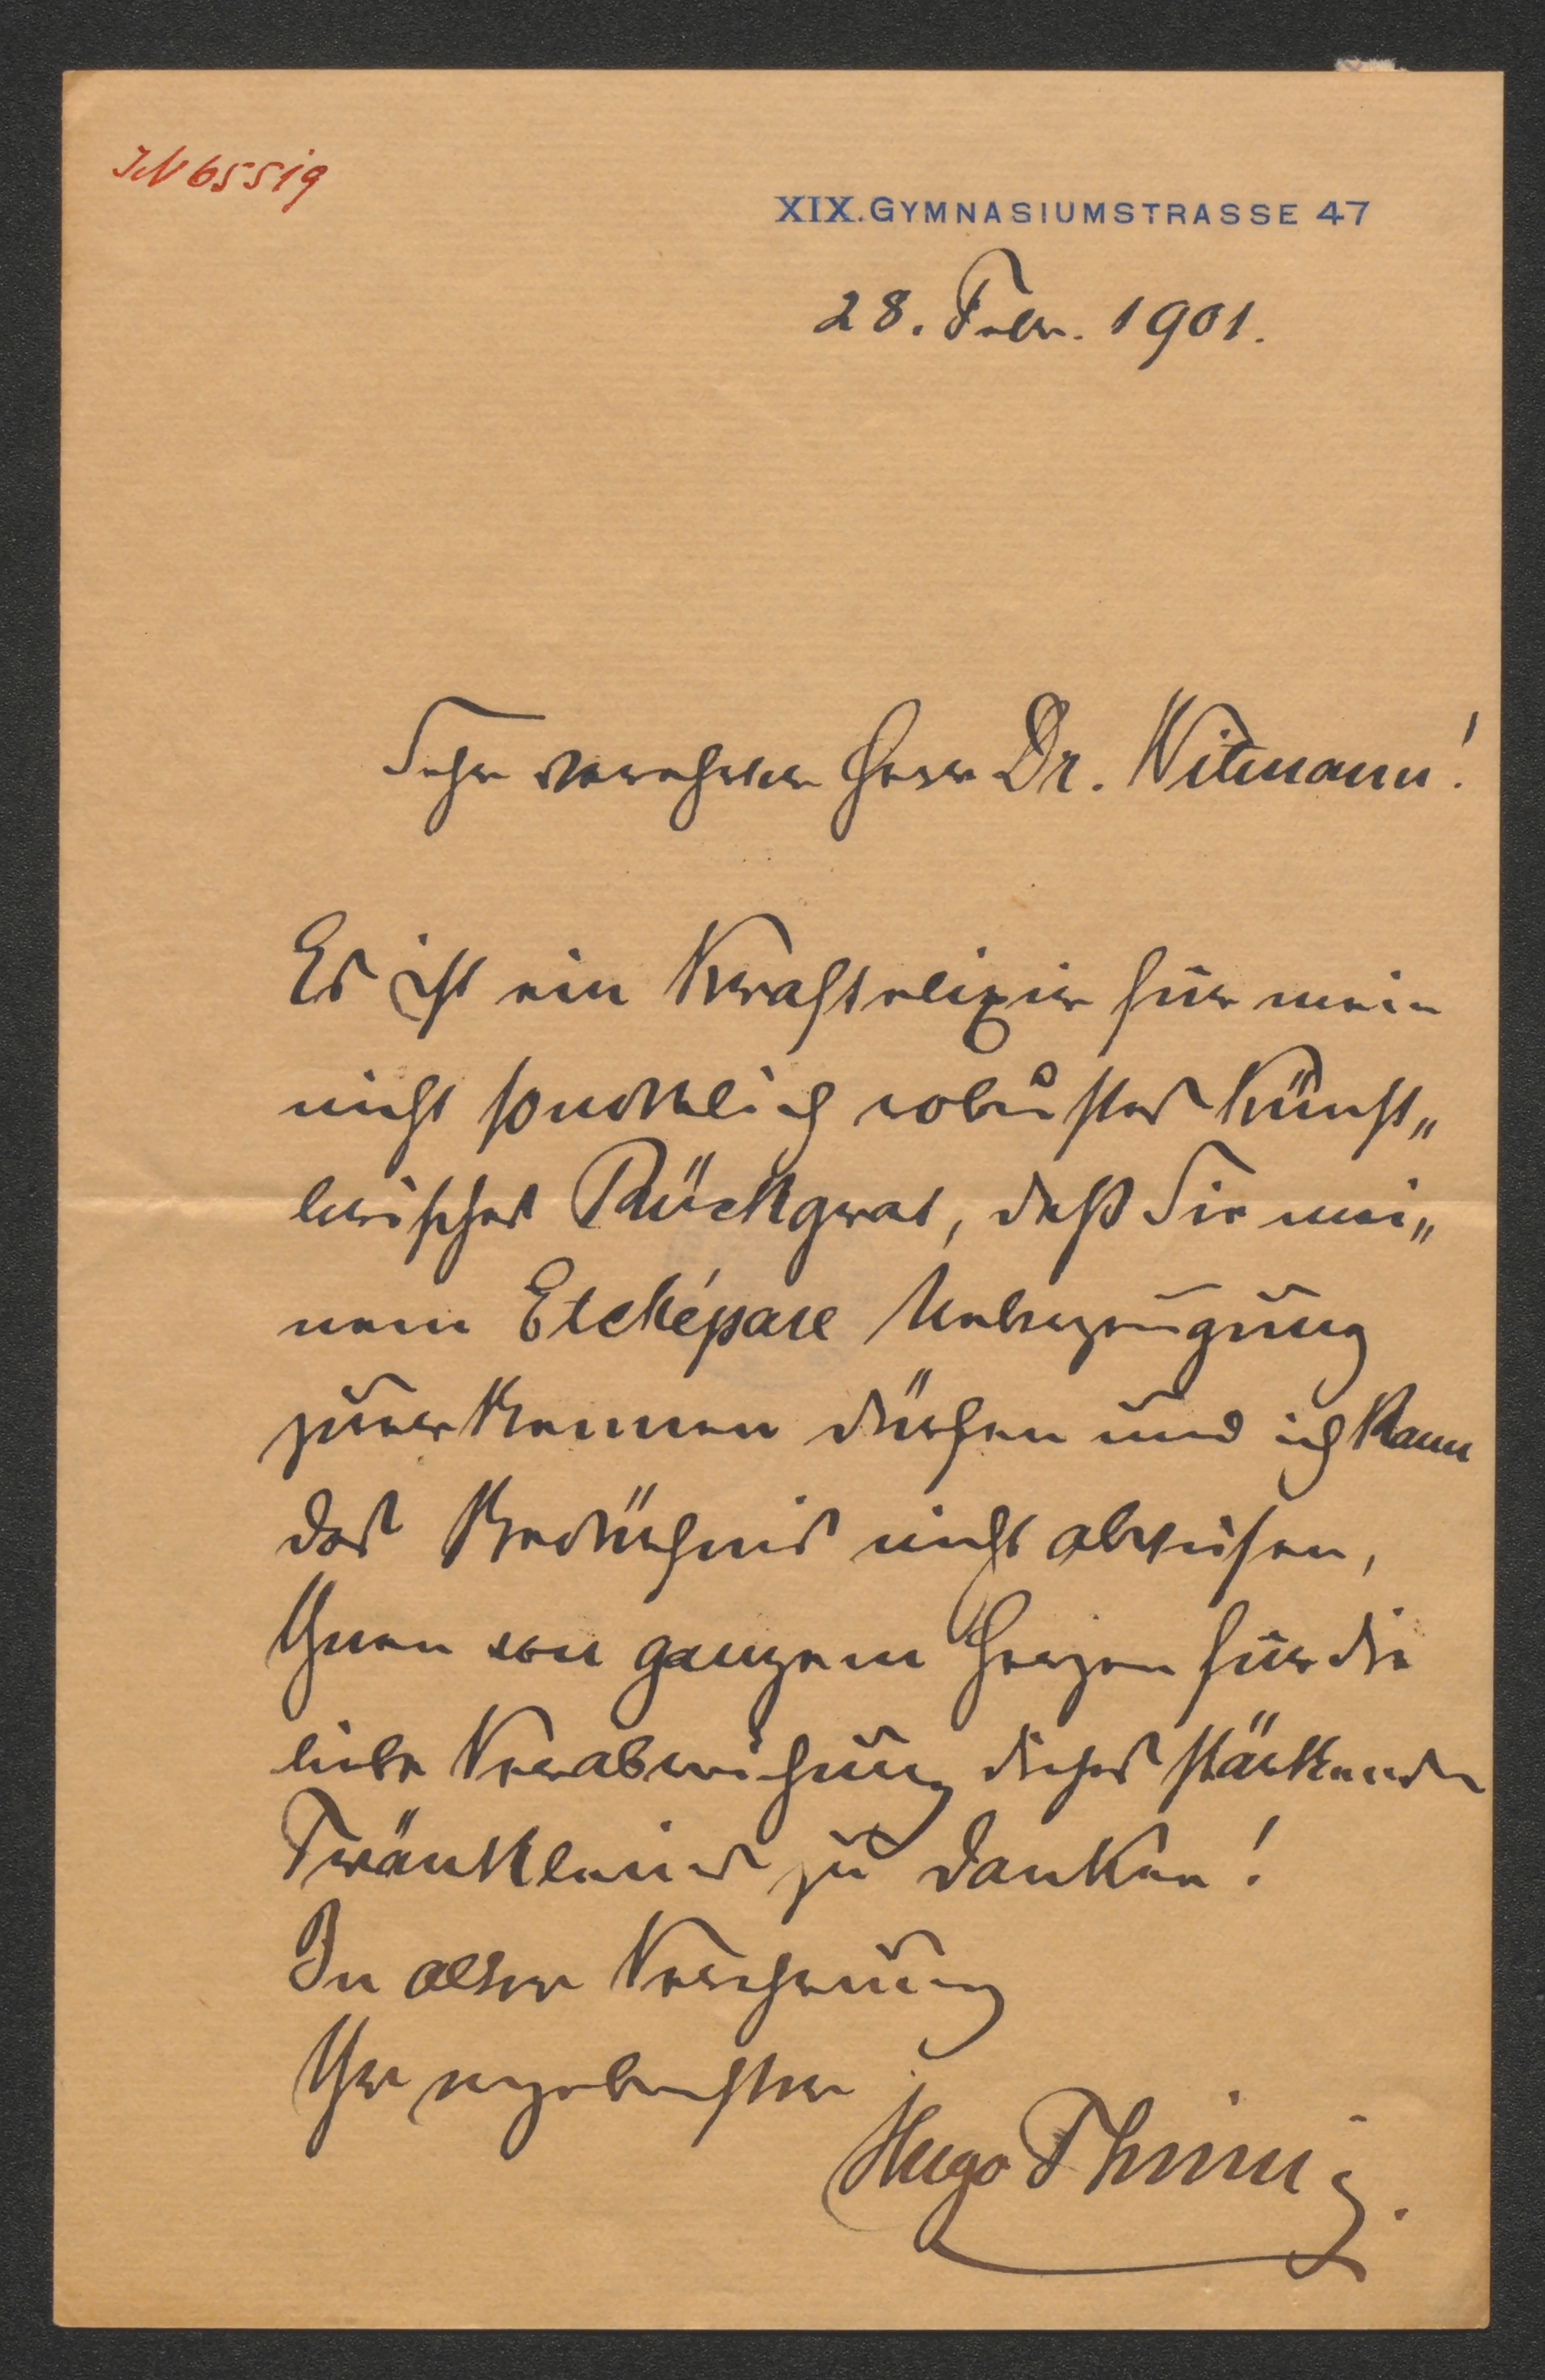 IN 65519
XIX. GYMNASIUMSTRASSE 47
28. Febr. 1901.
Sehr verehrter Herr Dr. Witmann!
Es ist ein Kraftelixir für mein
nicht sonderlich robustes künst„
lerisches Rückgrat, daß Sie mei„
nem Etchépare Ueberzeugung
zuerkennen dürfen und ich kann
das Bedürfnis nicht abweisen,
Ihnen von ganzem Herzen für die
liebe Verabreichung dieses stärkenden
Tränkleins zu danken!
In alter Verehrung
Ihr ergebenster
Hugo Thimig.